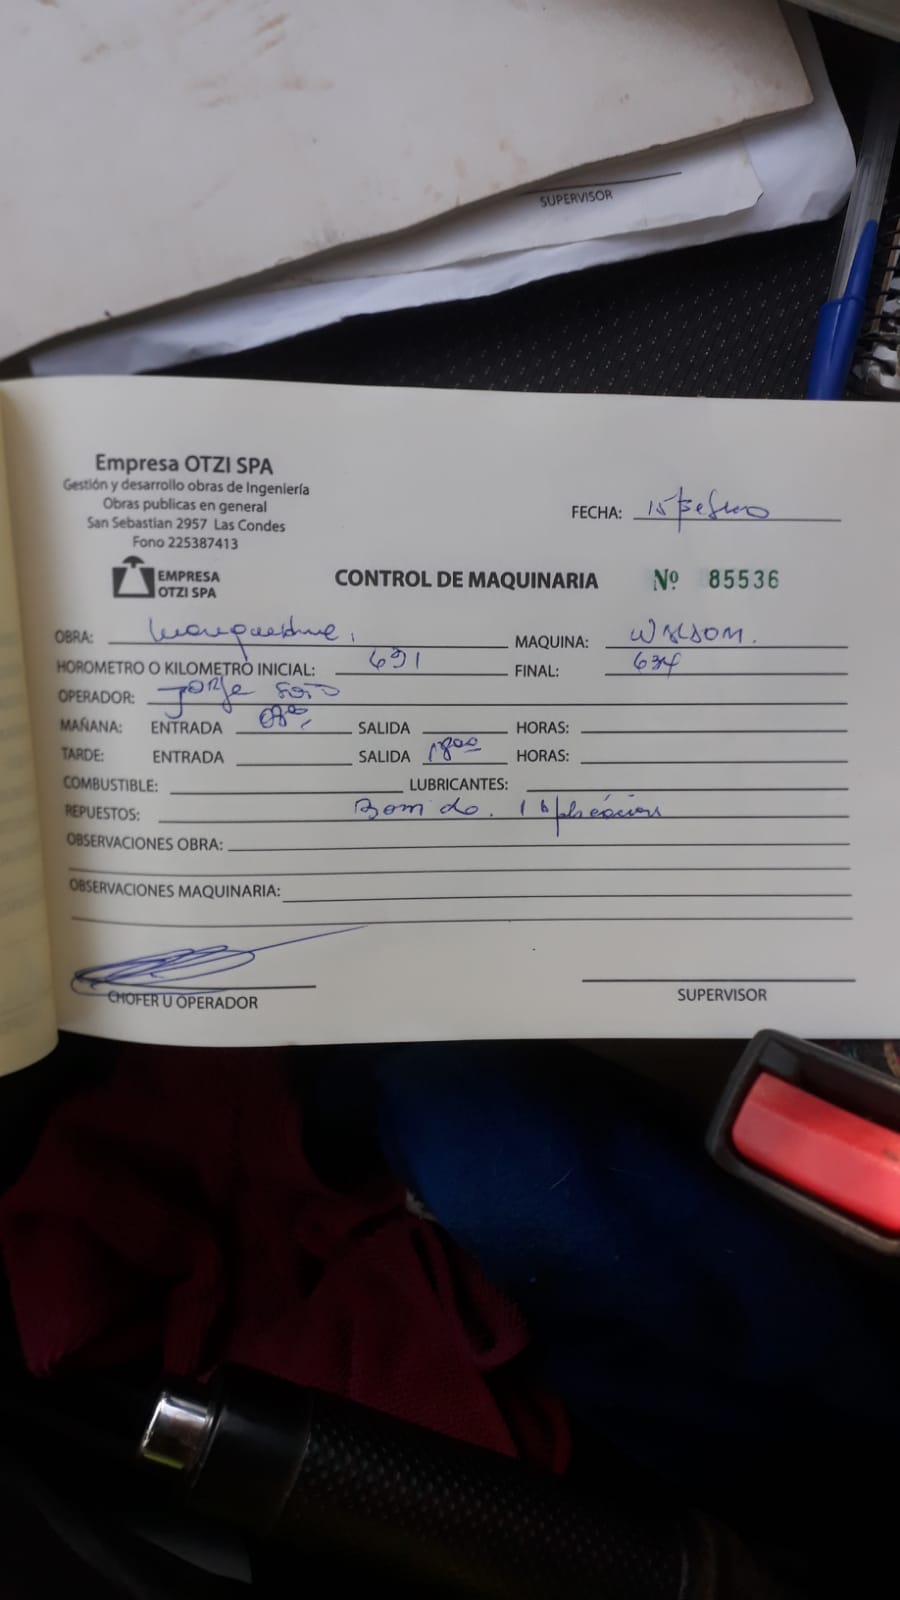 SUPERVISOR
Empresa OTZI SPA
Gestión y desarrollo obras de Ingeniería
Obras publicas en general
San Sebastian 2957 Las Condes
Fono 225387413
FECHA: 15
EMPRESA
OTZI SPA
CONTROL DE MAQUINARIA Nº 85536
OBRA: MAQUINA:
HOROMETRO O KILOMETRO INICIAL: 631 FINAL: 634
OPERADOR: Jorge Soto
MAÑANA: ENTRADA 08:00 SALIDA HORAS:
TARDE: ENTRADA SALIDA 1800 HORAS:
COMBUSTIBLE: LUBRICANTES:
REPUESTOS:
OBSERVACIONES OBRA:
OBSERVACIONES MAQUINARIA:
CHOFER U OPERADOR
SUPERVISOR